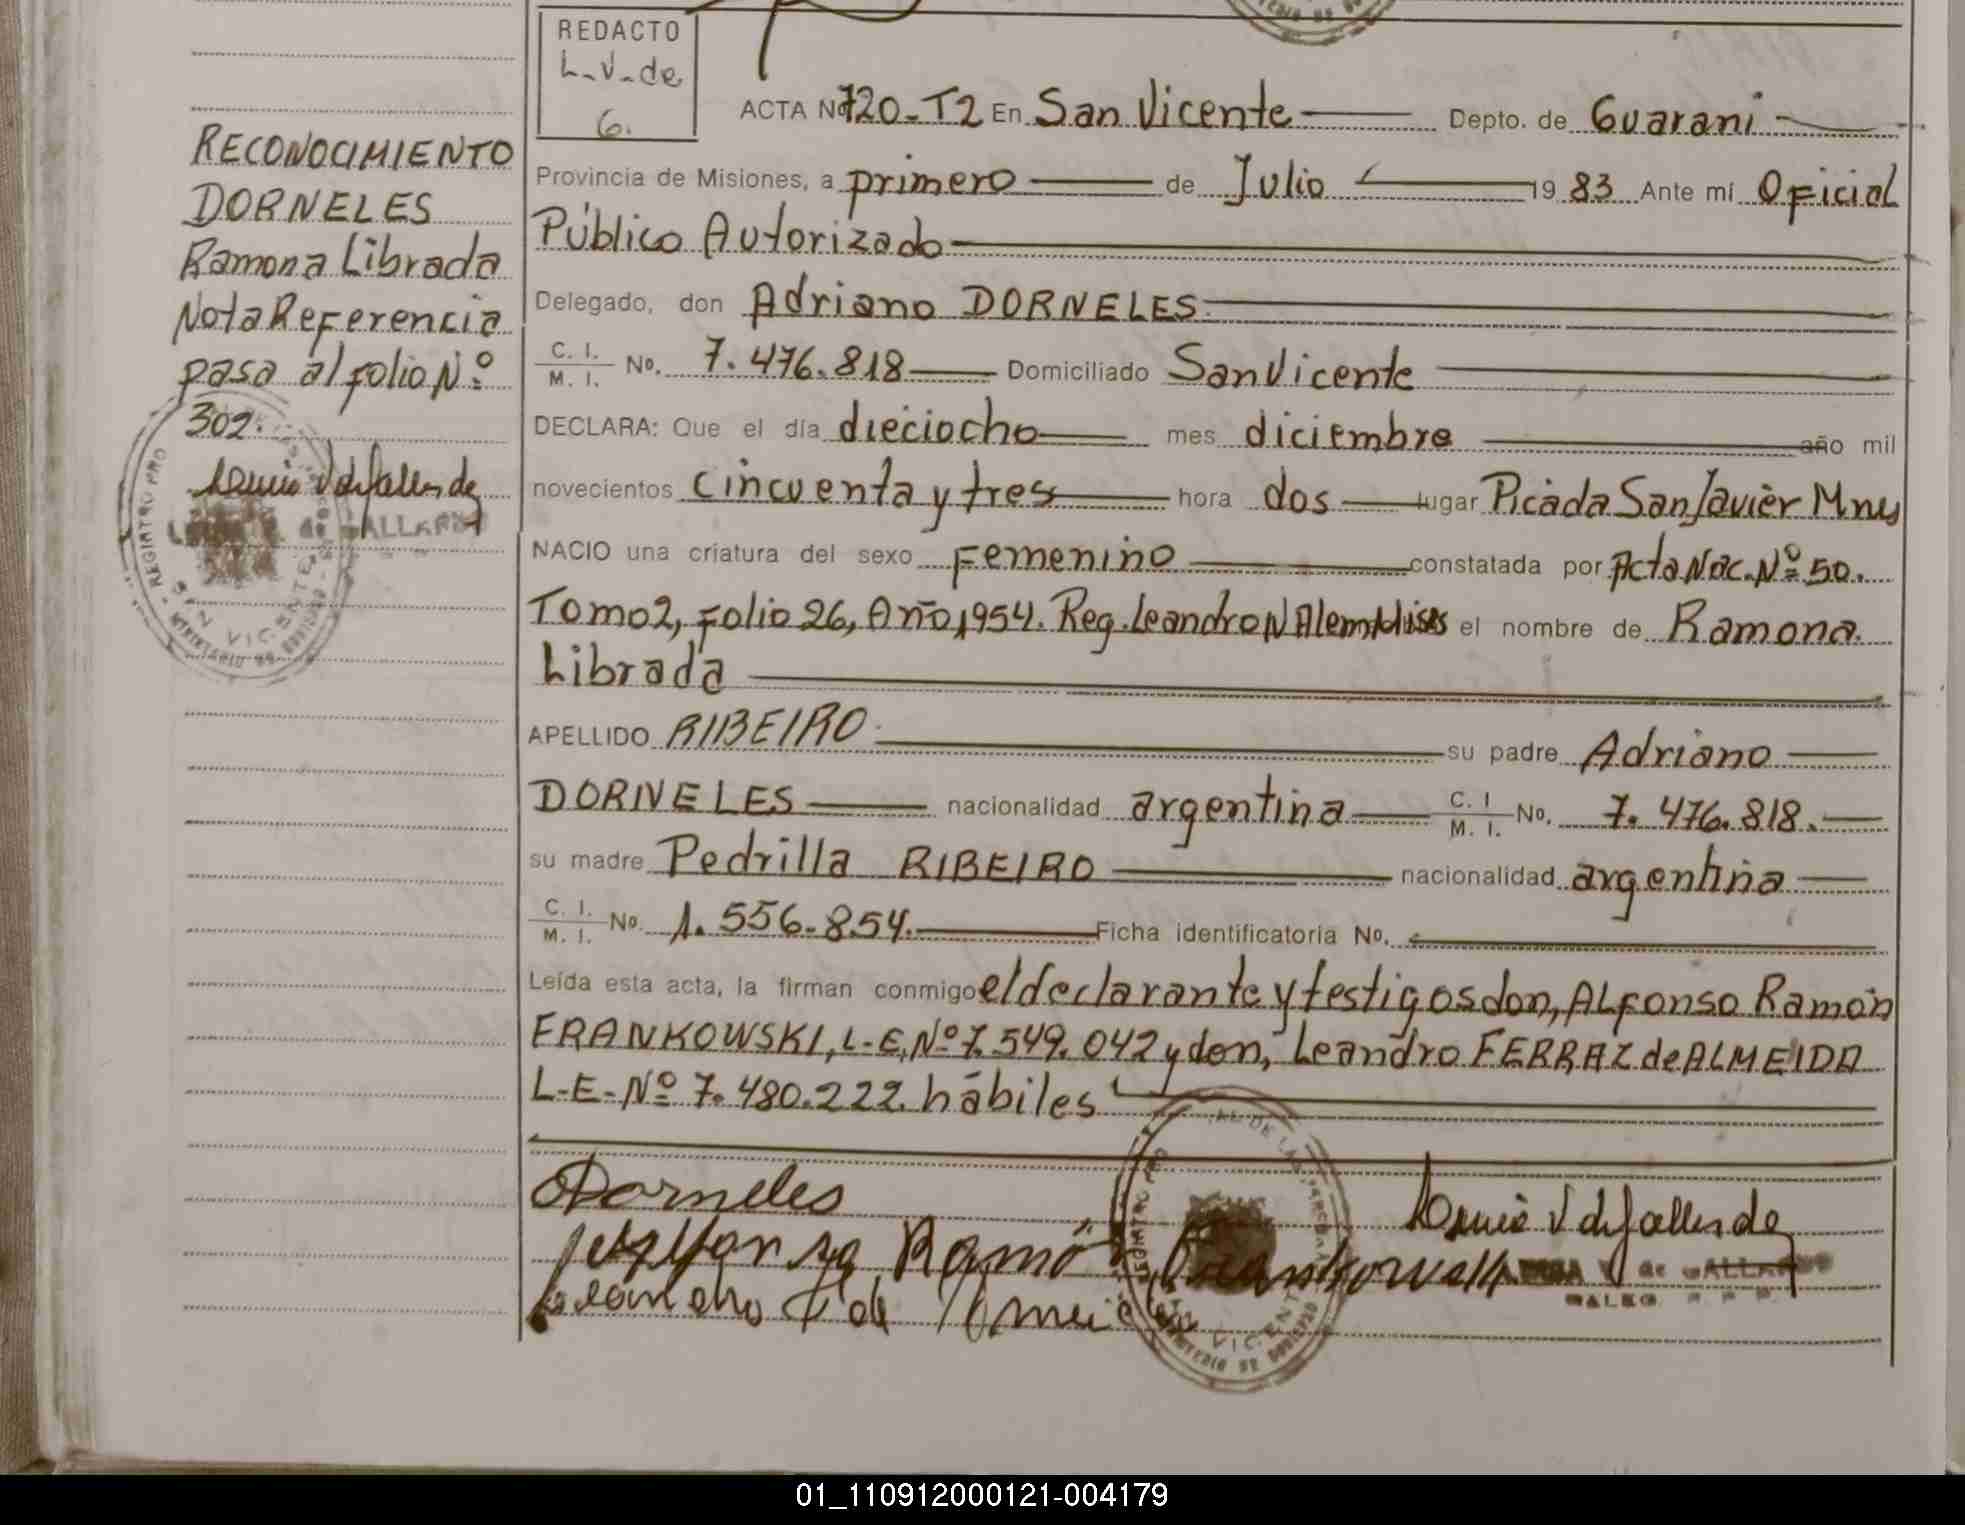 REDACTO
L-V-de
G.
ACTA No 720-T2 En San Vicente Depto. de Guarani
Provincia de Misiones, a primero de Julio 19 83 Ante mí Oficial
Público Autorizado
Delegado, don Adriano DORNELES
C. I. M. I. No. 7.476.818 Domiciliado San Vicente
DECLARA: Que el día dieciocho mes diciembre año mil
novecientos cincuenta y tres hora dos lugar Picada San Javier Mnes
NACIO una criatura del sexo Femenino constatada por Acta Nac. Nº 50.
Tomo 2, Folio 26, Año 1954. Reg. Leandro N Alem Misiones el nombre de Ramona
Librada
APELLIDO RIBEIRO su padre Adriano
DORNELES nacionalidad argentina C. I. M. I. No. 7.476.818.
su madre Pedrilla RIBEIRO nacionalidad argentina
C. I. M. I. No. 1.556.854. Ficha identificatoria No.
Leída esta acta, la firman conmigo el declarante y testigos don, ALFonso Ramón
FRANKOWSKI, L-E, Nº 7.549.042 y don, Leandro FERRAZ de ALMEIDA
L-E-Nº 7.480.222. hábiles
Dorneles
Ramón
RECONOCIMIENTO
DORNELES
Ramona Librada
Nota Referencia
pasa al folio Nº
302.
SAN VICENTE
01_110912000121-004179